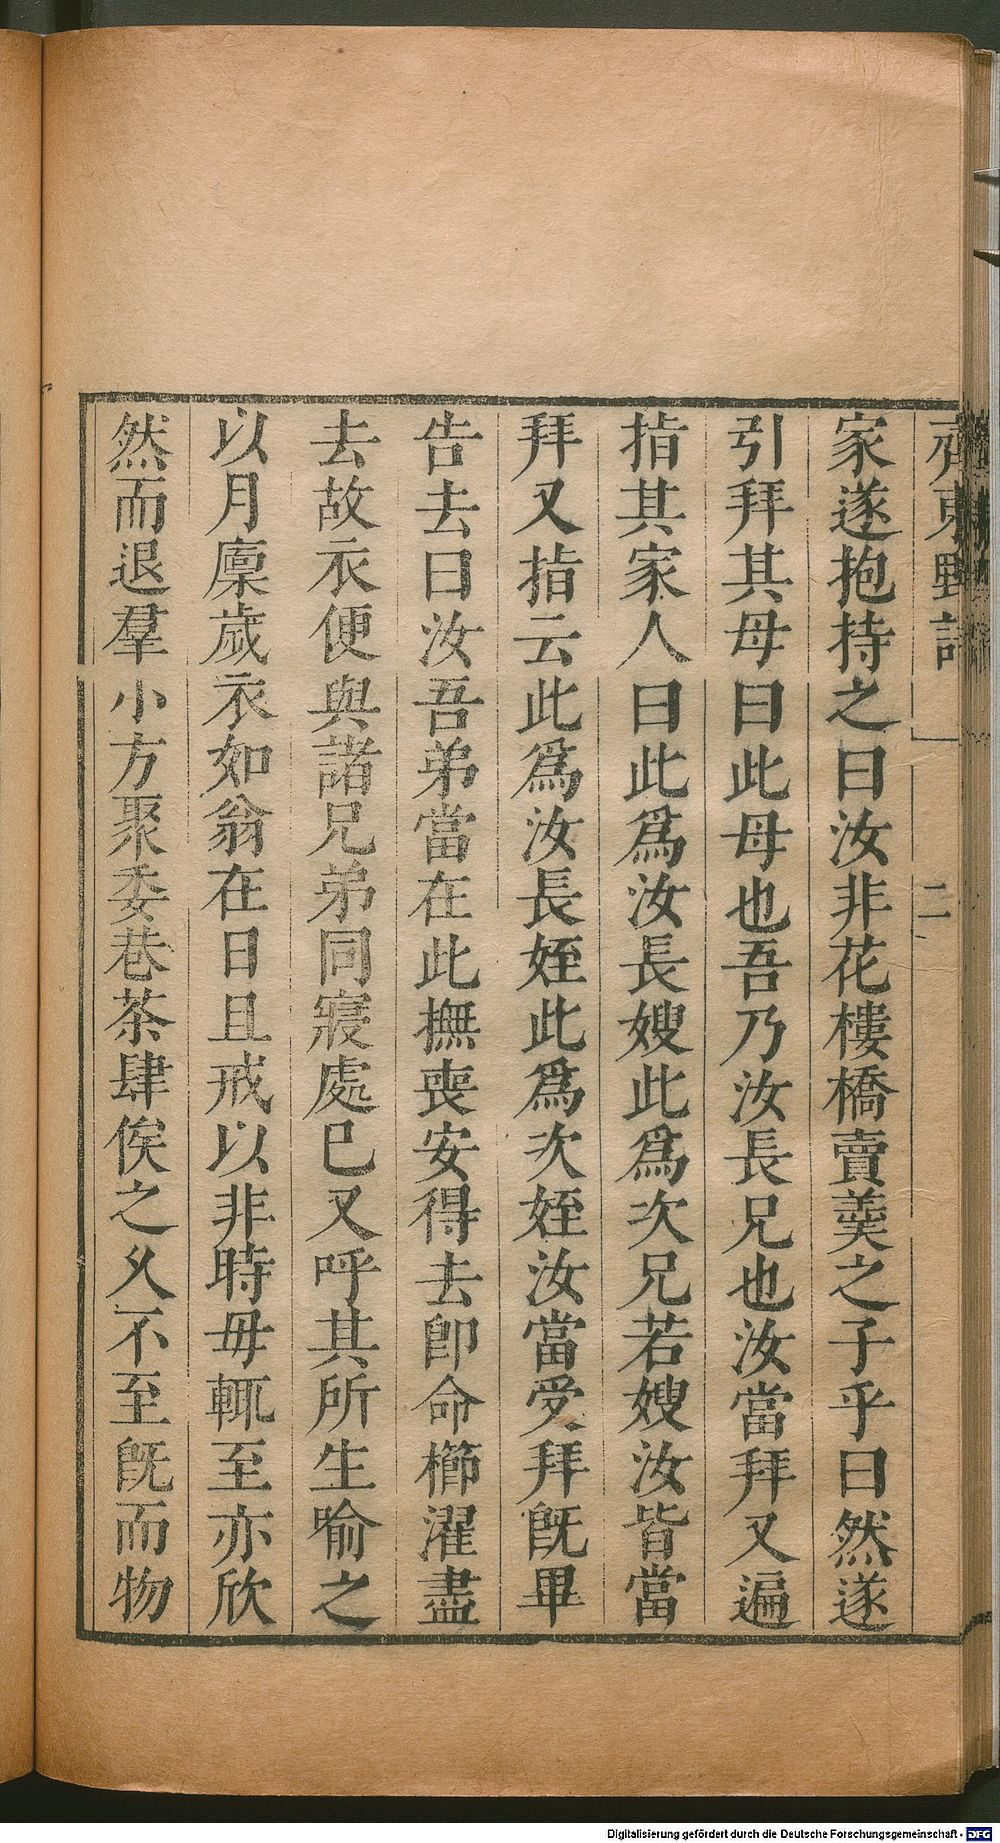 齊東野語 二
家遂抱持之曰汝非花樓橋賣羹之子乎曰然遂
引拜其母曰此母也吾乃汝長兄也汝當拜又遍
指其家人曰此爲汝長嫂此爲次兄若嫂汝皆當
拜又指云此爲汝長姪此爲次姪汝當受拜旣畢
告去曰汝吾弟當在此撫喪安得去卽命櫛濯盡
去故衣便與諸兄弟同寢處已又呼其所生喻之
以月廩歲衣如翁在日且戒以非時毋輒至亦欣
然而退羣小方聚委巷茶肆俟之久不至旣而物
Digitalisierung gefördert durch die Deutsche Forschungsgemeinschaft - DFG